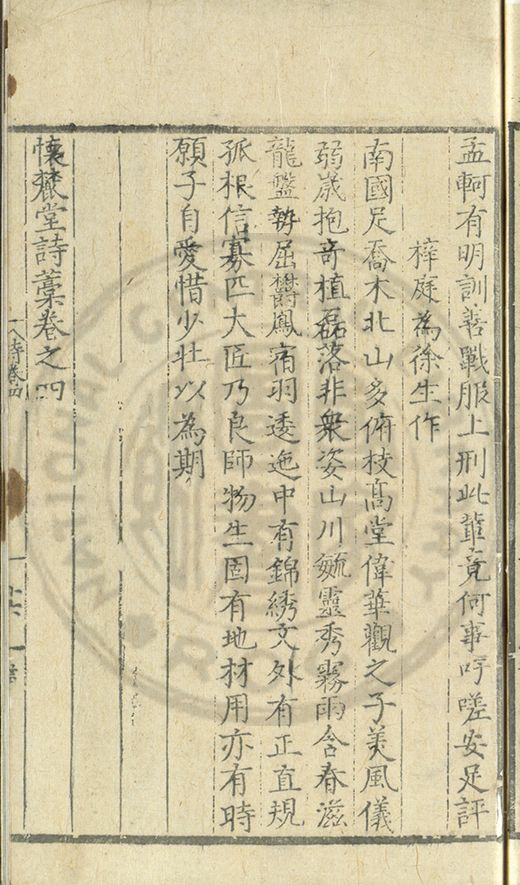 孟軻有明訓善戰服上刑此輩竟何事吁嗟安足評
梓庭為徐生作
南國足喬木北山多脩枝高堂偉華觀之子美風儀
弱歲抱奇植磊落非衆姿山川毓靈秀霧雨含春滋
龍盤勢屈鬱鳳宿羽逶迤中有錦綉文外有正直規
孤根信寡匹大匠乃良師物生固有地材用亦有時
願子自愛惜少壯以為期
懷麓堂詩藁卷之四